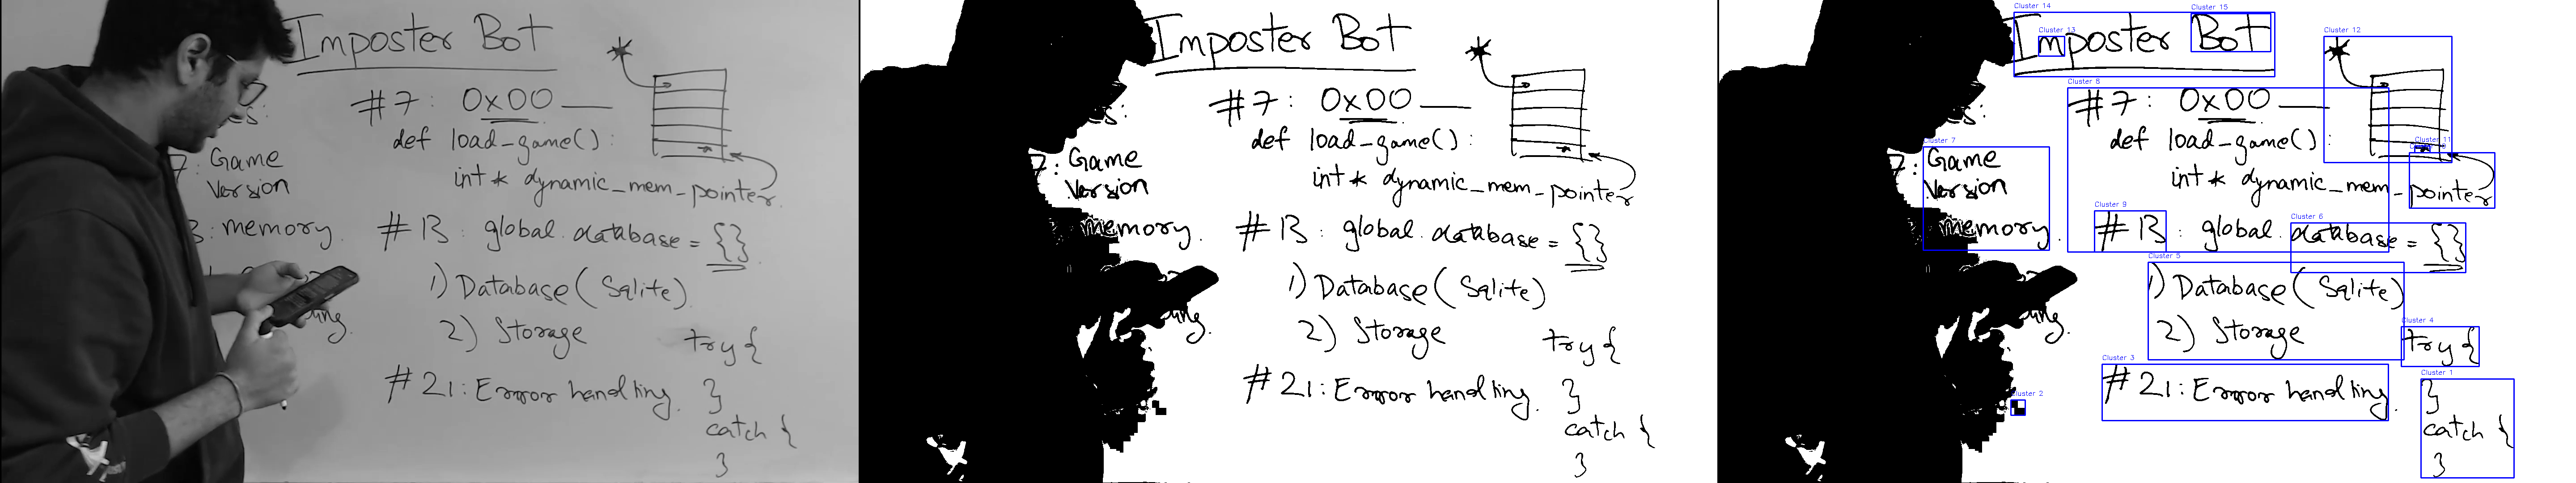 Imposter Bot
#7: 0x00 ___
def load_game():
int * dynamic_mem_pointer
7: Game
Version
3: memory.
#13: global.database = {}
1) Database (Sqlite)
2) Storage
#21: Error handling.
try {
}
catch {
}
Imposter Bot
#7: 0x00 ___
def load_game():
int * dynamic_mem_pointer
7: Game
Version
memory.
#13: global.database = {}
1) Database (Sqlite)
2) Storage
#21: Error handling.
try {
}
catch {
}
Cluster 14
Cluster 15
Cluster 13
Imposter Bot
Cluster 12
Cluster 8
#7: 0x00 ___
def load_game():
Cluster 11
int * dynamic_mem_pointer
Cluster 7
7: Game
Version
memory.
Cluster 9
Cluster 6
#13: global.database = {}
Cluster 5
1) Database (Sqlite)
2) Storage
Cluster 4
try {
Cluster 3
#21: Error handling.
Cluster 2
Cluster 1
}
catch {
}